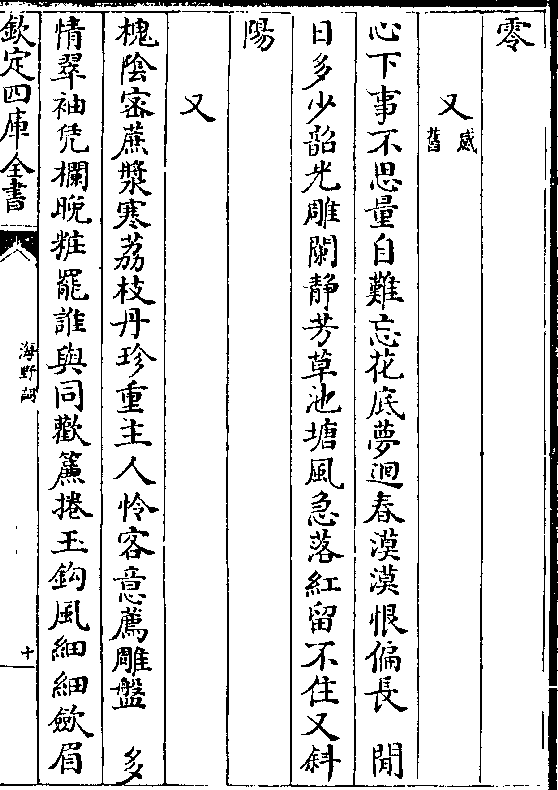 零
又感舊
心下事不思量自難忘花底夢迴春漠漠恨偏長　聞
日多少韶光雕闌靜芳草池塘風急落紅留不住又斜
陽
又
槐陰密蔗漿寒荔枝丹珍重主人怜客意薦雕盤　多
情翠袖凭欄晚粧罷誰與同歡簾捲玉鈎風細細歛眉
欽定四庫全書
海野詞
十